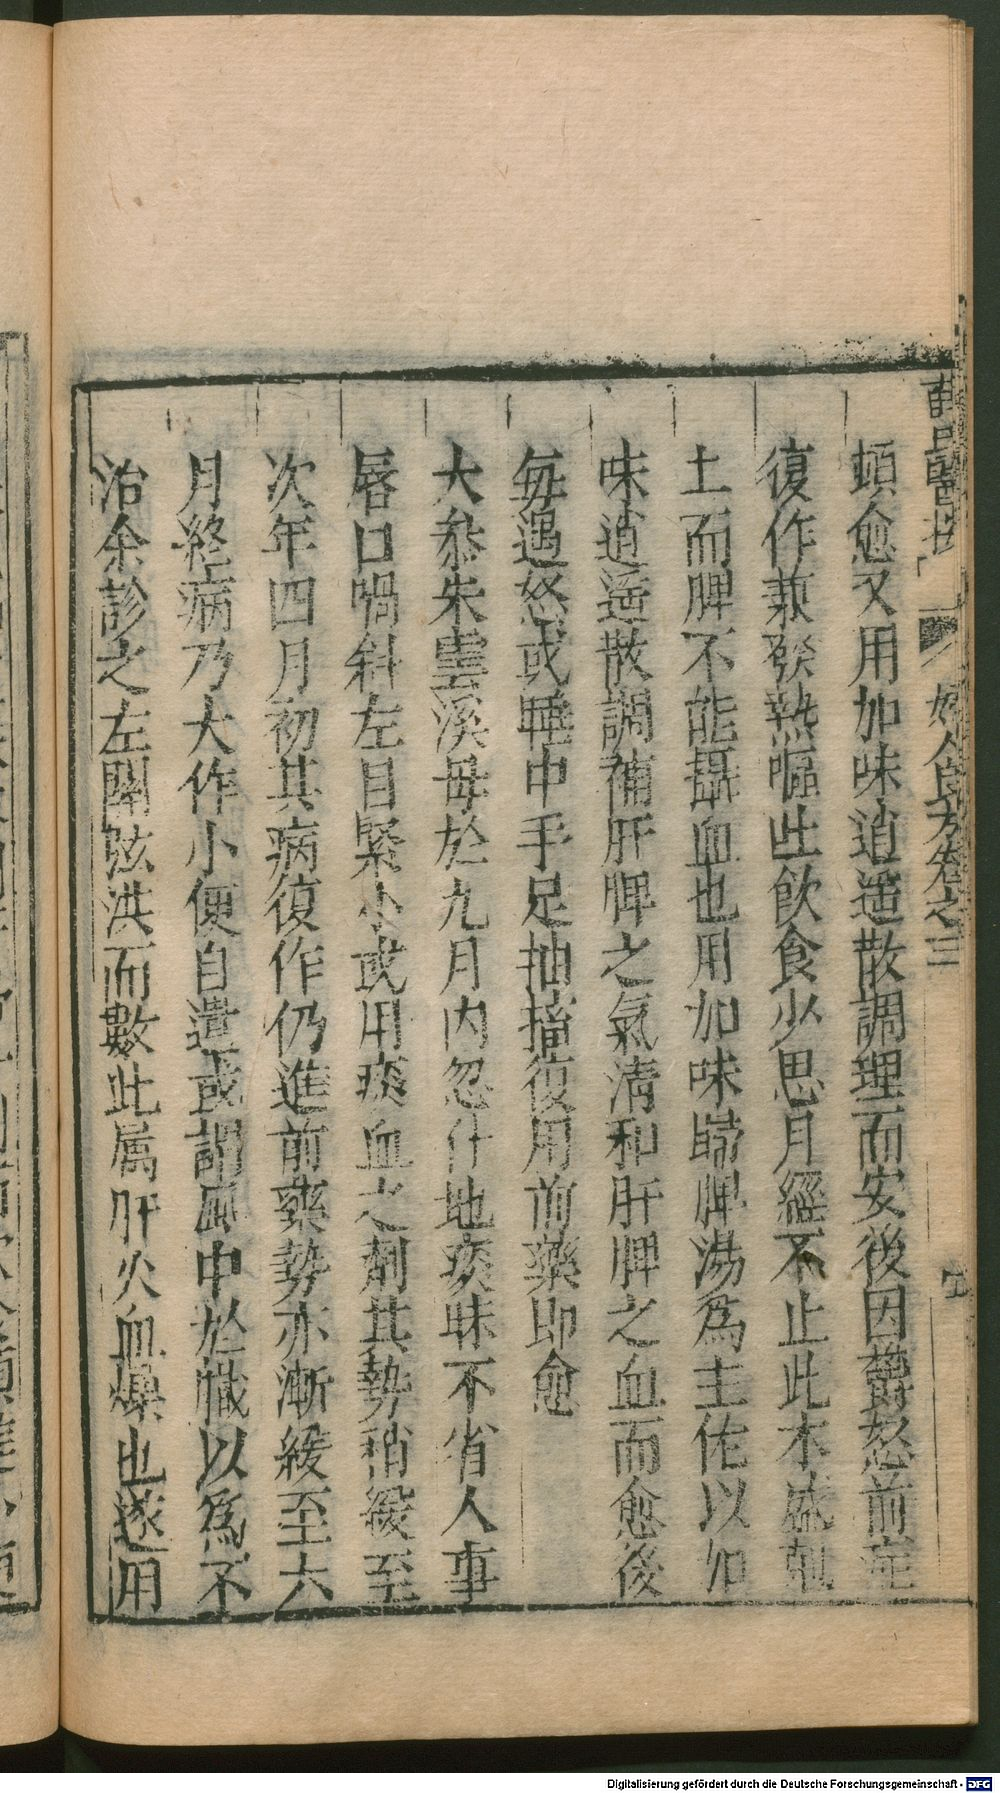 薛氏醫按
婦人良方卷之三
頓愈又用加味逍遥散調理而安後因鬱怒前症
復作兼發熱嘔吐飲食少思月經不止此木盛剋
土而脾不能攝血也用加味歸脾湯爲主佐以加
味逍遥散調補肝脾之氣清和肝脾之血而愈後
每遇怒或睡中手足抽搐復用前藥即愈
大㕘朱雲溪母於九月内忽仆地痰昧不省人事
唇口喎斜左目緊小或用痰血之劑其勢稍緩至
次年四月初其病復作仍進前藥勢亦漸緩至六
月終病乃大作小便自遺或謂風中於臟以爲不
治余診之左關弦洪而數此属肝火血燥也遂用
Digitalisierung gefördert durch die Deutsche Forschungsgemeinschaft - DFG